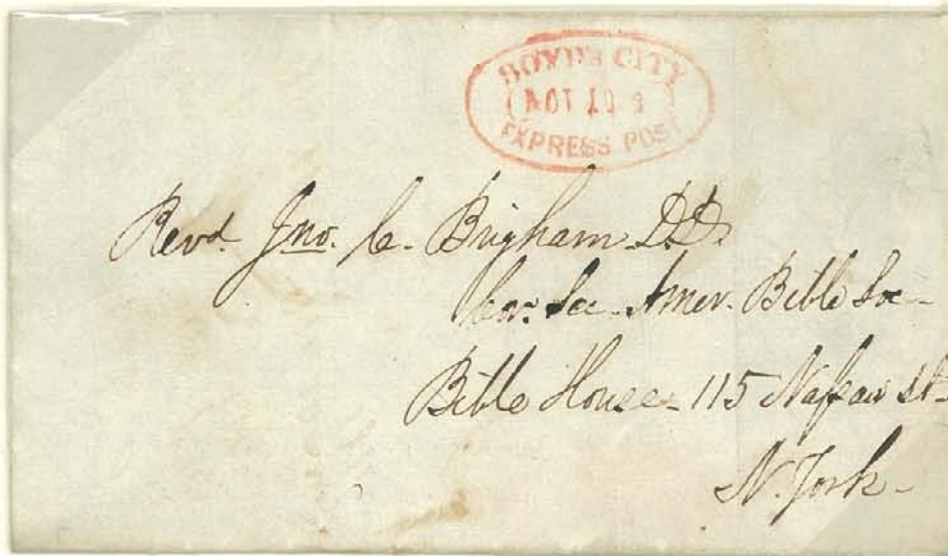 BOYD'S CITY
EXPRESS POST
Revd. Jno. C. Brigham D.D.
Cor. Sec. Amer. Bible Soc-
Bible House - 115 Nassau St-
N. York-